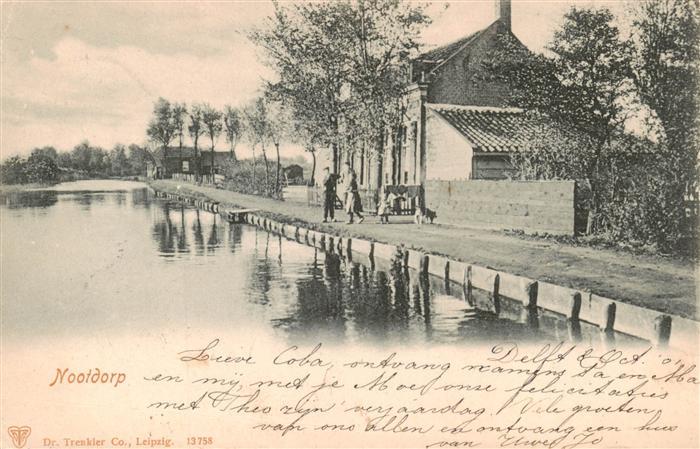 Delft 2 Oct. '0
Lieve Coba, ontvang namens Pa en Moe
en mij met je Moe onze felicitaties
Nootdorp
met Theo zijn verjaardag. Vele groeten
van ons allen en ontvang een kus
van Uwe Jo
Dr. Trenkler Co., Leipzig. 13758